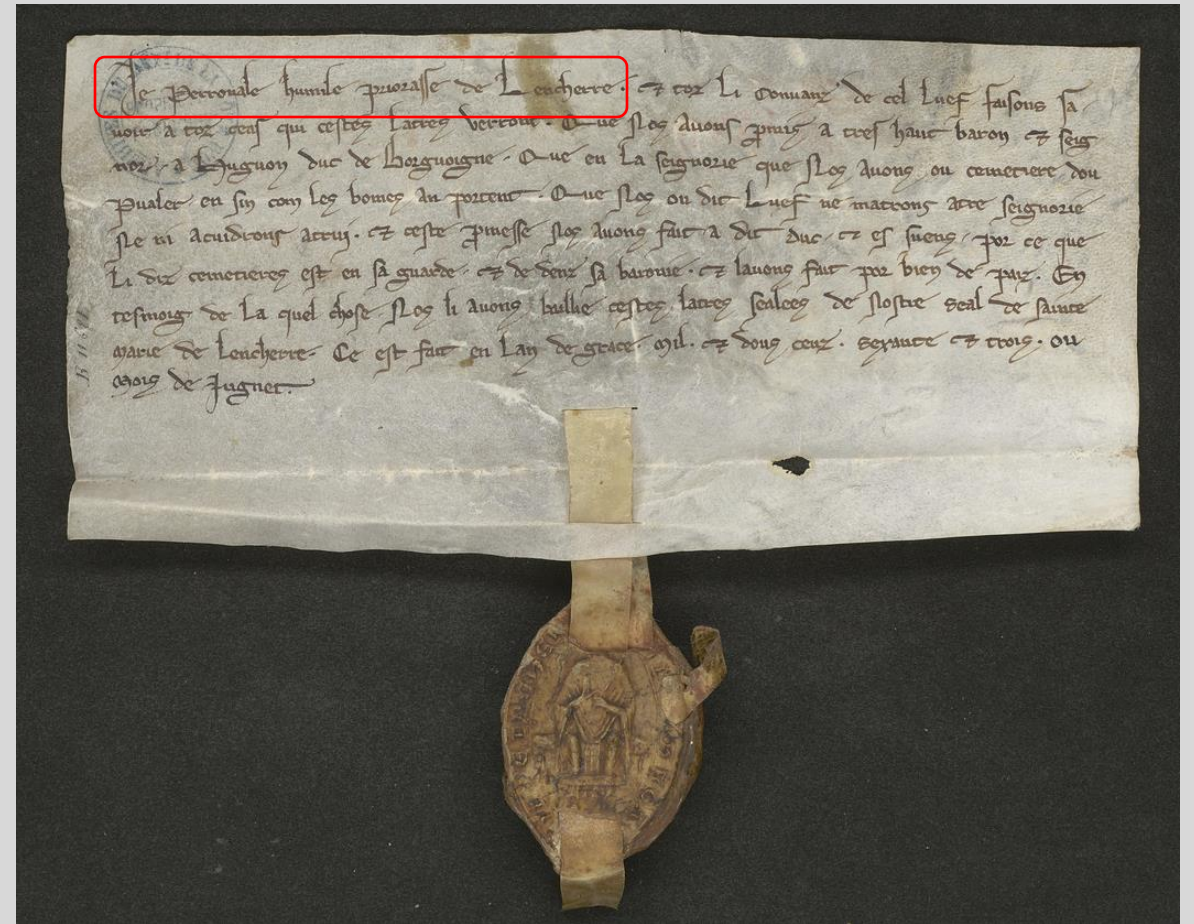 Je Perronale humile priorasse de Lencherre · et toz li Convanz de cel Luef faisons sa
voir a toz ceas qui cestes latres verront · Que Nos Avons promis a tres haut baron et seig
nor · a Huguon duc de Borguoigne · Que en la seignorie que Nos Avons ou cemetiere dou
Pualer en sin com les bomes an portent · Que Nos ou dit Luef ne matrons atre seignorie
Ne ni acuidrons atrui · et ceste promesse Nos avons fait a dit duc · et es suens · por ce que
Li diz cemetieres est en sa guarde · et de denz sa baronie · et lavons fait por bien de paiz · En
tesmoig de La quel chose · Nos li avons baillie cestes latres sealees de Nostre seal de sainte
Marie de Lencherre · Ce est fait en Lan de grace · Mil · et dous cenz · sexante et trois · ou
Mois de Jugnet ·